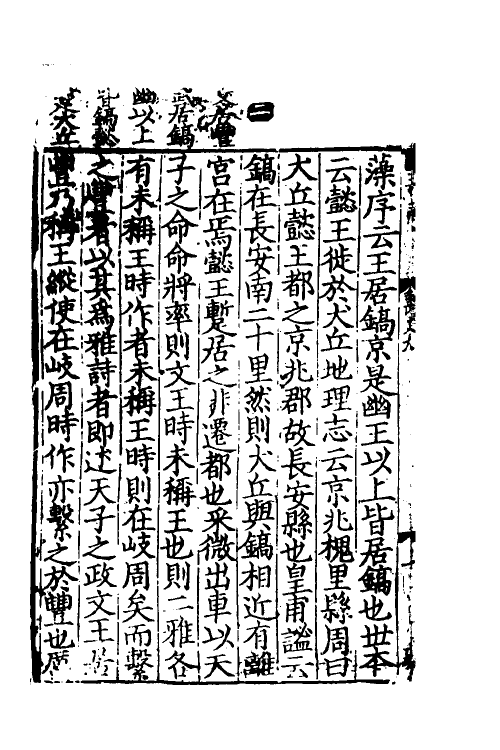 藻序云王居鎬京是幽王以上皆居鎬也世本
云懿王徙於犬丘地理志云京兆槐里縣周曰
大丘懿王都之京兆郡故長安縣也皇甫謐云
鎬在長安南二十里然則犬丘與鎬相近有離
宮在焉懿王蹔居之非遷都也采薇出車以天
子之命命將率則文王時未稱王也則二雅各
有未稱王時作者未稱王時則在岐周矣而繫
之豐者以其爲雅詩者即述天子之政文王居
豐乃稱王縱使在岐周時作亦繫之於豐也
二
居豐
武居鎬
幽以上
皆鎬懿
犬丘